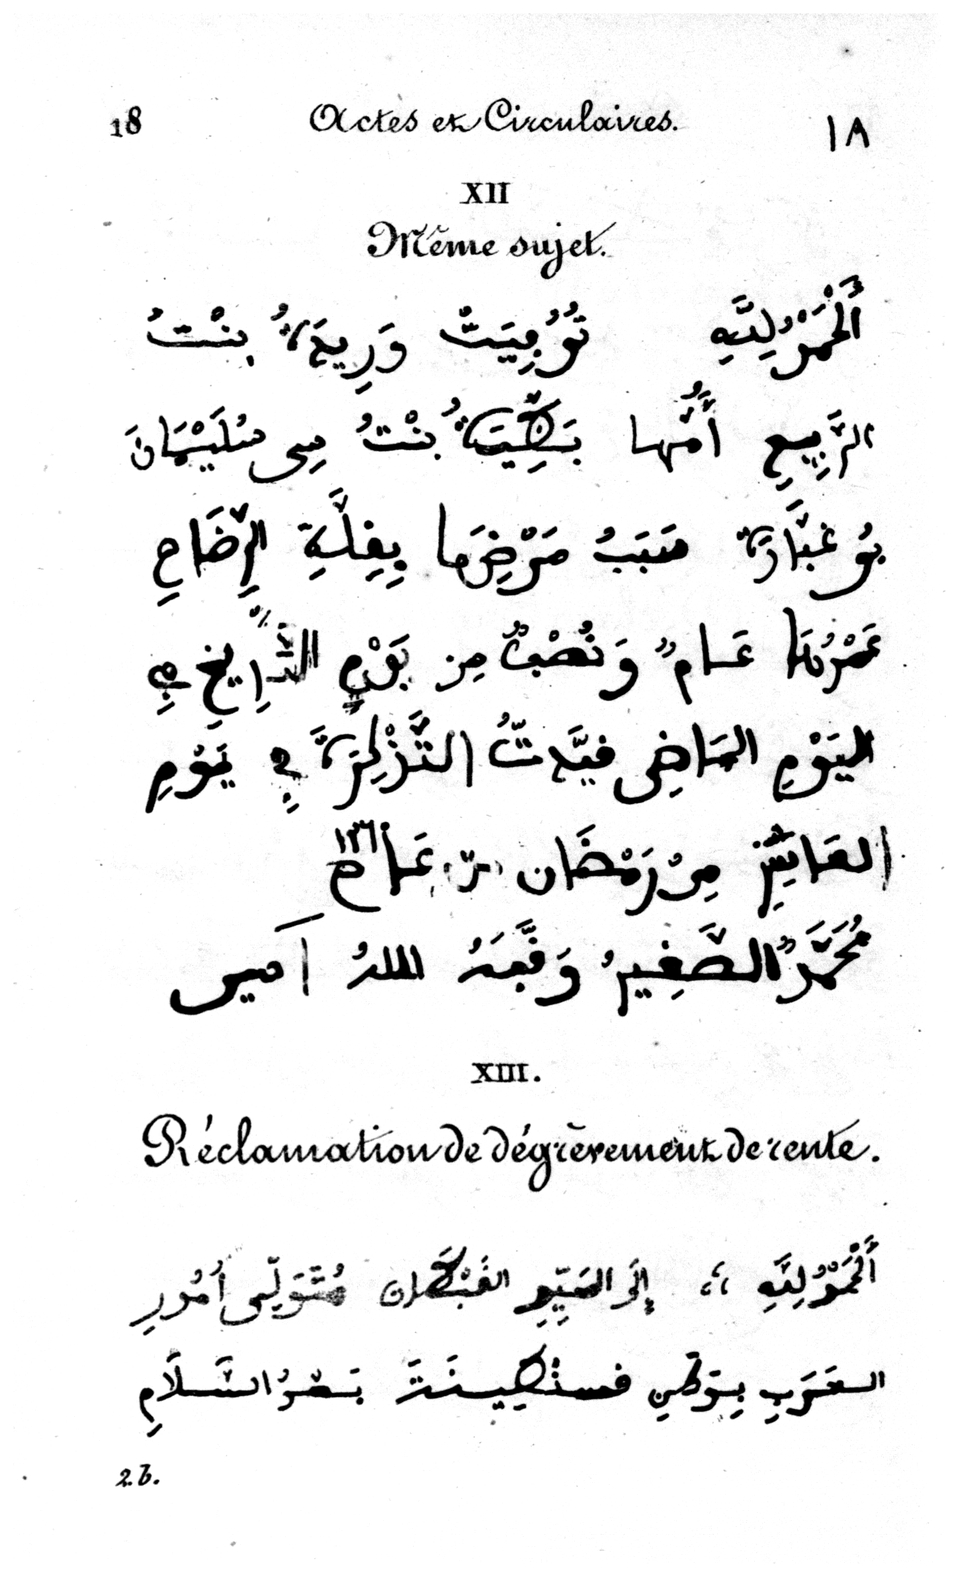 18 Actes et Circulaires. ١٨
XII
Même sujet.
أَلْحَمْدُ لِلَّهِ تُوُفِّيَتْ وَرِيعَةُ بِنْتُ
الرَّبِيعِ أُمُّهَا بَرْكِيَّةُ بِنْتُ سِى سُلَيْمَانَ
بُو غَبَّارَةَ سَبَبُ مَرْضِهَا بِفِلَّةِ الرِّضَاحِ
عَمْرُهَا عَامٌ وَنُصْفٌ مِن يَوْمِ التَّارِيخِ فِي
اليَوْمِ المَاضِى قُيِّدَتْ التَّذْكِرَةُ فِي يَوْمِ
العَاشِرِ مِنْ رَمْضَان عَام
مُحَمَّدُ الصَّغِيرُ وَفَّقَهُ اللهُ آمين
XIII.
Réclamation de dégrèvement de rente.
أَلْحَمْدُ لِلَّهِ إِلَى السَّيِّدِ القَبْطَان مُتَوَلِّى أُمُورِ
العَرَبِ بِوَطَنِ قسنْطِينَة بَعْدُ السَّلَامِ
2.b.